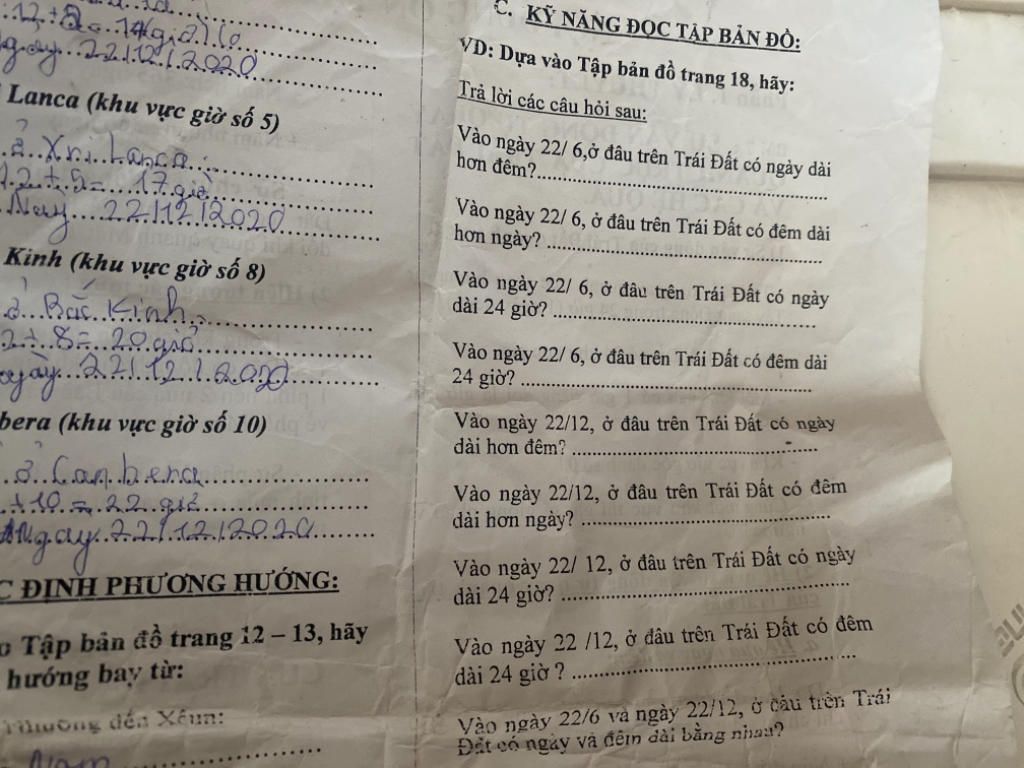 12+2=14giờ
Ngày 22/12/2020
Lanca (khu vực giờ số 5)
ở Xri Lanca
12+5=17 giờ
Ngày 22/12/2020
Kinh (khu vực giờ số 8)
ở Bắc Kinh
12+8=20 giờ
ngày 22/12/2020
bera (khu vực giờ số 10)
ở Canbera
+10=22 giờ
Ngay 22/12/2020
C ĐỊNH PHƯƠNG HƯỚNG:
Tập bản đồ trang 12 – 13, hãy
hướng bay từ:
đến Xêun:
Nam
C. KỸ NĂNG ĐỌC TẬP BẢN ĐỒ:
VD: Dựa vào Tập bản đồ trang 18, hãy:
Trả lời các câu hỏi sau:
Vào ngày 22/ 6,ở đâu trên Trái Đất có ngày dài
hơn đêm?
Vào ngày 22/ 6, ở đâu trên Trái Đất có đêm dài
hơn ngày?
Vào ngày 22/ 6, ở đâu trên Trái Đất có ngày
dài 24 giờ?
Vào ngày 22/ 6, ở đâu trên Trái Đất có đêm dài
24 giờ?
Vào ngày 22/12, ở đâu trên Trái Đất có ngày
dài hơn đêm?
Vào ngày 22/12, ở đâu trên Trái Đất có đêm
dài hơn ngày?
Vào ngày 22/ 12, ở đâu trên Trái Đất có ngày
dài 24 giờ?
Vào ngày 22 /12, ở đâu trên Trái Đất có đêm
dài 24 giờ ?
Vào ngày 22/6 và ngày 22/12, ở đâu trên Trái
Đất có ngày và đêm dài bằng nhau?